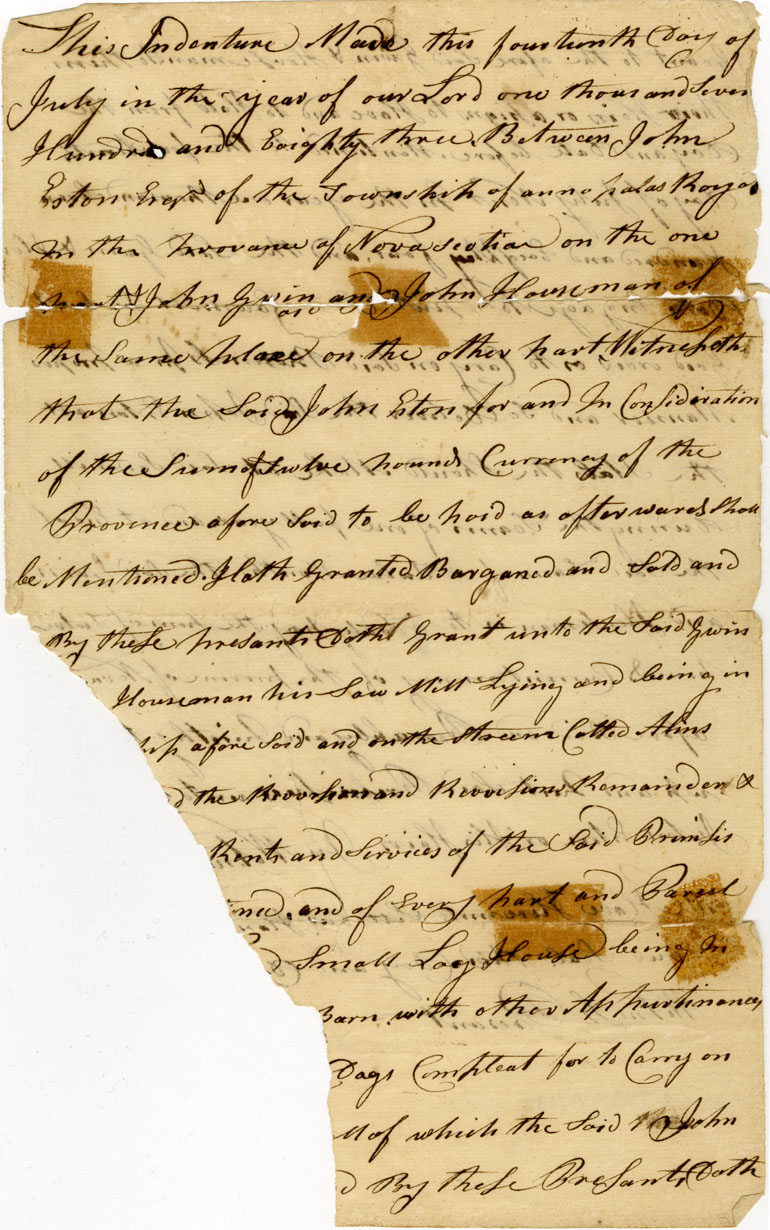 This Indenture Made this fourteenth Day of
July in the year of our Lord one thousand Seven
Hundred and Eeighty three Between John
Eston Esqr of the Township of annopalas Royal
In the provance of Nova scotiae on the one
part John Gwin and John Houseman of
the Same place on the other part Witnesseth
that the Said John Eston for and In Consideration
of the Sum of Twelve pounds Currency of the
Provence afore Said to be paid as after wards Shall
be Mentioned Hath Granted Barganed and Sold and
By these presants Doth Grant unto the Said Gwin
Houseman his Saw Mill Lying and being in
ship afore Said and on the Streem Called Alins
d the Revorsion and Revorsions Remainder &
Rents and Services of the Said Primsis
and of Every part and Parcel
d Small Log House being In
Barn with other Appurtinances
Dogs Compleat for to Carry on
ll of which the Said John
d By these Presants Doth